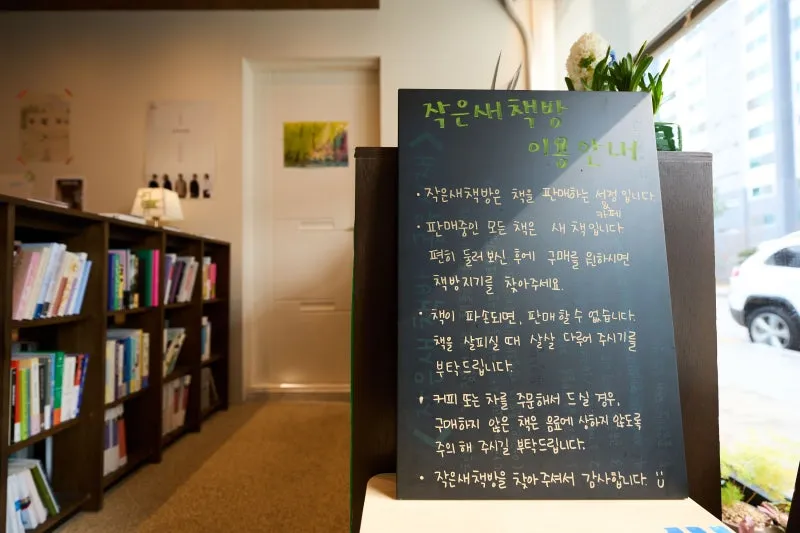 작은새책방
이용안내
• 작은새책방은 책을 판매하는 서점입니다
& 카페
• 판매중인 모든 책은 새 책입니다
편히 둘러보신 후에 구매를 원하시면
책방지기를 찾아주세요.
• 책이 파손되면, 판매할 수 없습니다.
책을 살피실 때 살살 다루어 주시기를
부탁드립니다.
• 커피 또는 차를 주문해서 드실 경우,
구매하지 않은 책은 음료에 상하지 않도록
주의해 주시길 부탁드립니다.
• 작은새책방을 찾아주셔서 감사합니다 :)